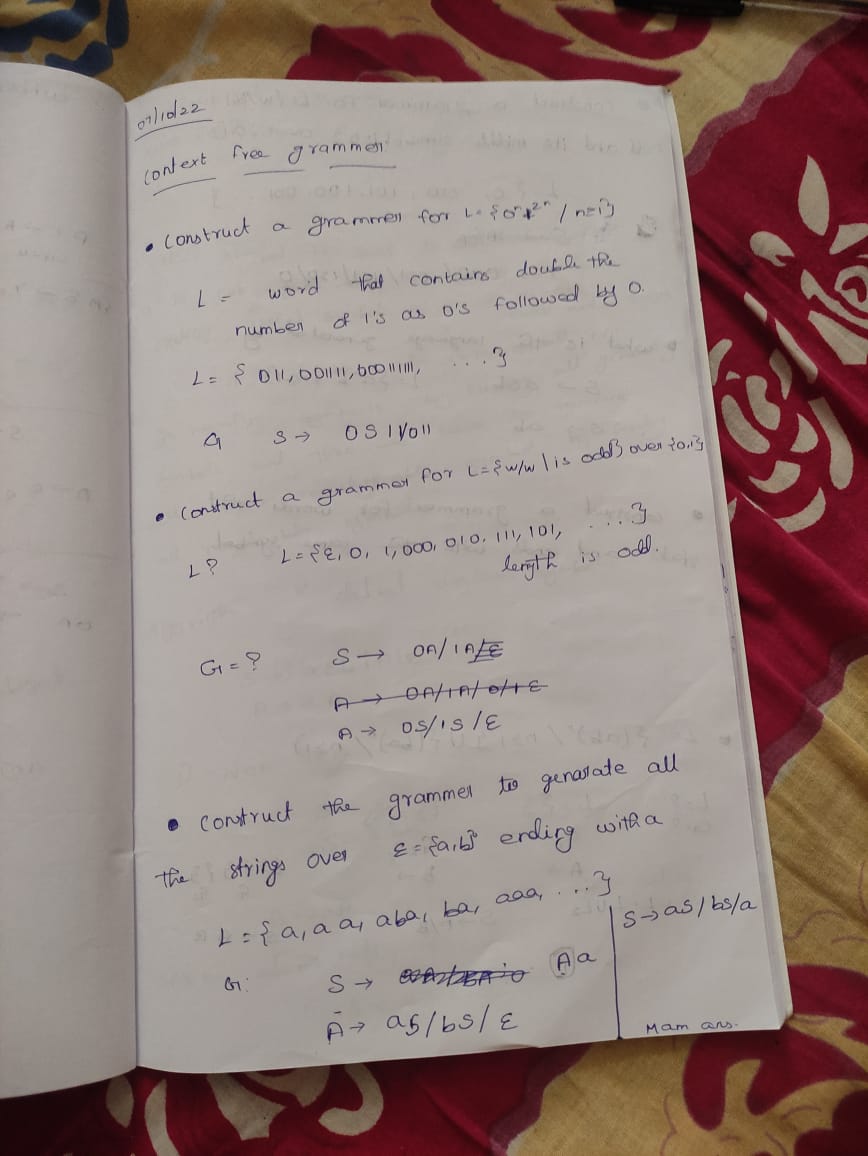 07/10/22
Context free grammer
• Construct a grammer for L = {0ⁿ1²ⁿ / n=1}
L = word that contains double the
number of 1's as 0's followed by 0.
L = { 011, 001111, 000111111, ....}
G S → 0S11/011
• Construct a grammer for L={w/w | is odd} over {0,1}
L? L = {ε, 0, 1, 000, 010, 111, 101, ....}
length is odd.
G = ? S → 0A/1A/ε
A → 0A/1A/0/1 ε
A → 0S/1S/ε
• Construct the grammer to genarate all
the strings over Ɛ = {a,b} ending with a
L = { a, a a, aba, ba, aaa, ...}
G: S → Aa
A → aS/bS/ε
S → aS/bS/a
Mam ans.